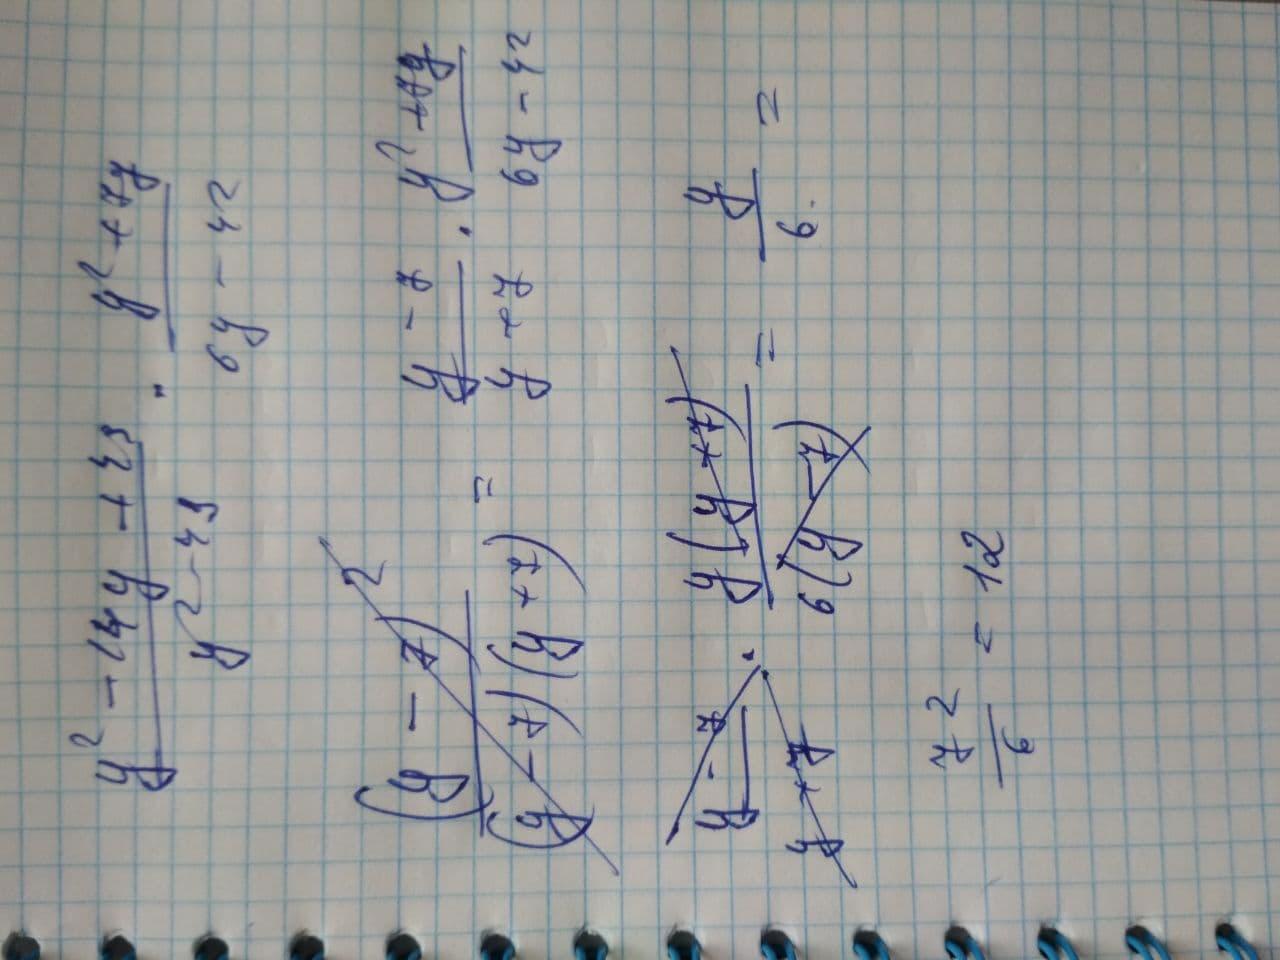 y² - 14y + 49 / y² - 49 · y² + 7y / 6y - 42
(y - 7)² / (y - 7)(y + 7) = y - 7 / y + 7 · y² + 7y / 6y - 42
y - 7 / y + 7 · y(y + 7) / 6(y - 7) = y / 6 =
72 / 6 = 12